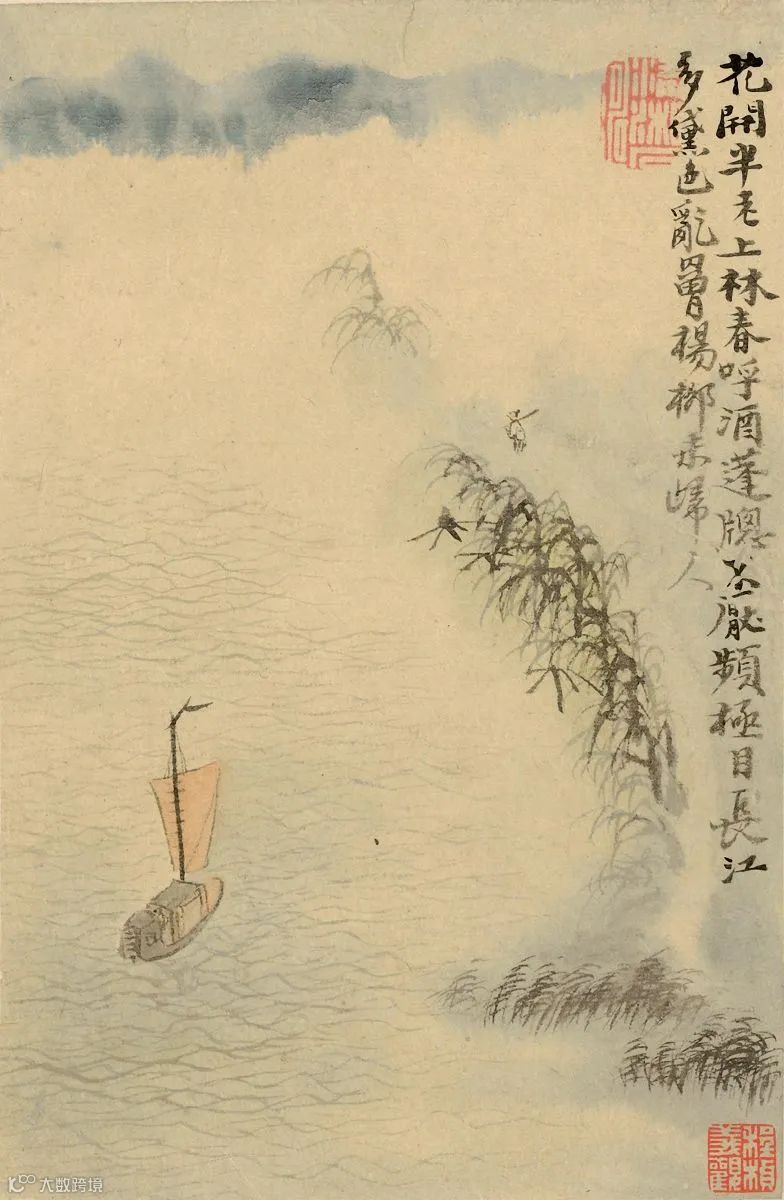 花開半老上林春呼酒蓬牕不厭頻極目長江
多黛色亂罥楊柳未歸人
程楨
義觀
大数跨境